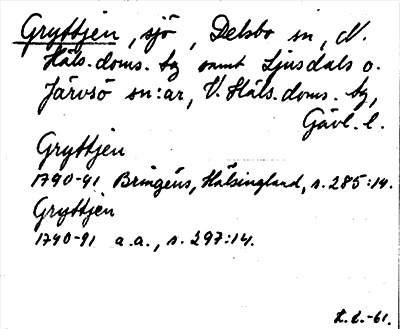 Gryttjen, sjö, Delsbo sn, N.
Häls.doms. tg samt Ljusdals o.
Järvsö sn:ar, V. Häls.doms. tg,
Gävl. l.
Gryttjen
1790-91 Bringéus, Hälsingland, s. 285:14.
Gryttjen
1790-91 a.a., s. 297:14.
-61.